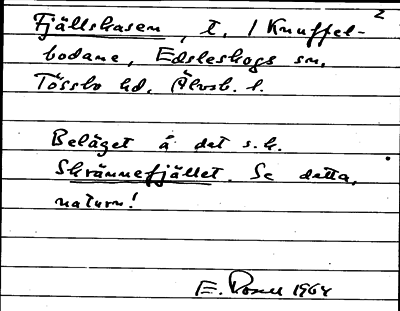 2
Fjällshasen, t. 1 Knuffel-
bodane, Edsleskogs sn,
Tössbo hd, Älvsb. l.
Beläget å det s.k.
Skrännefjället. Se detta,
naturn!
E. Rosell 1964